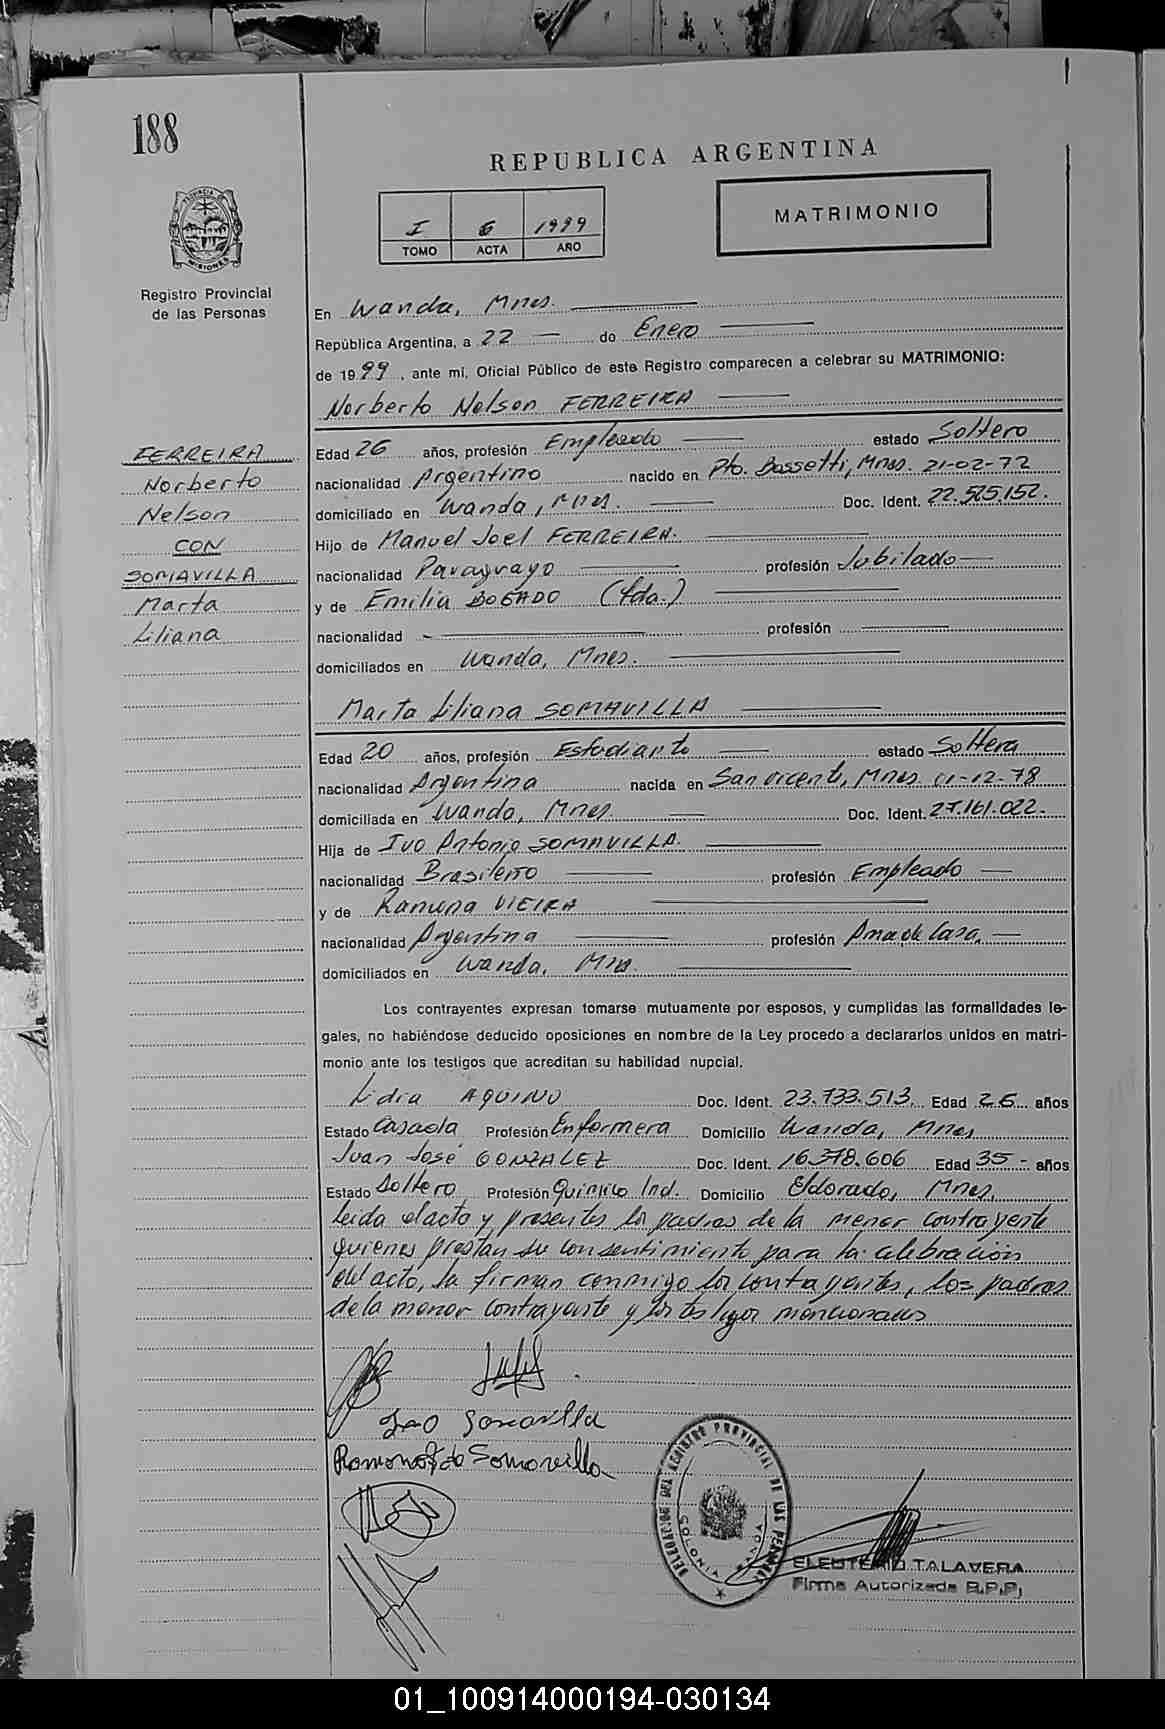 188
REPUBLICA ARGENTINA
MATRIMONIO
I 6 1999
TOMO ACTA AÑO
PROVINCIA DE
MISIONES
Registro Provincial
de las Personas
En Wanda, Mnes.
República Argentina, a 22 de Enero
de 1999, ante mi, Oficial Público de este Registro comparecen a celebrar su MATRIMONIO:
Norberto Nelson FERREIRA
FERREIRA
Norberto
Nelson
CON
SOMAVILLA
Marta
Liliana
Edad 26 años, profesión Empleado estado Soltero
nacionalidad Argentino nacido en Pto. Bossetti, Mnes. 21-02-72
domiciliado en Wanda, Mnes. Doc. Ident. 22.525.152.
Hijo de Manuel Joel FERREIRA.
nacionalidad Paraguayo profesión Jubilado
y de Emilia BOGADO (fda.)
nacionalidad profesión
domiciliados en Wanda, Mnes.
Marta Liliana SOMAVILLA
Edad 20 años, profesión Estudiante estado Soltera
nacionalidad Argentina nacida en San Vicente, Mnes. 11-12-78
domiciliada en Wanda, Mnes. Doc. Ident. 27.161.022.
Hija de Ivo Antonio SOMAVILLA.
nacionalidad Brasilero profesión Empleado
y de Ramona VIEIRA
nacionalidad Argentina profesión Ama de Casa.
domiciliados en Wanda, Mns.
Los contrayentes expresan tomarse mutuamente por esposos, y cumplidas las formalidades le-
gales, no habiéndose deducido oposiciones en nombre de la Ley procedo a declararlos unidos en matri-
monio ante los testigos que acreditan su habilidad nupcial.
Lidia AQUINO Doc. Ident. 23.733.513. Edad 26 años
Estado Casada Profesión Enfermera Domicilio Wanda, Mnes.
Juan José GONZALEZ Doc. Ident. 16.378.606 Edad 35 - años
Estado Soltero Profesión Químico Ind. Domicilio Eldorado, Mnes.
leída el acta y presentes los padres de la menor contrayente
quienes prestan su consentimiento para la celebración
del acto, la firman conmigo los contrayentes, los padres
de la menor contrayente y los testigos mencionados
Ivo Somavilla
Ramona de Somavilla
DELEGACION DEL REGISTRO PROVINCIAL DE LAS PERSONAS
COLONIA WANDA
ELEUTERIO TALAVERA
Firma Autorizada R.P.P.
01_100914000194-030134